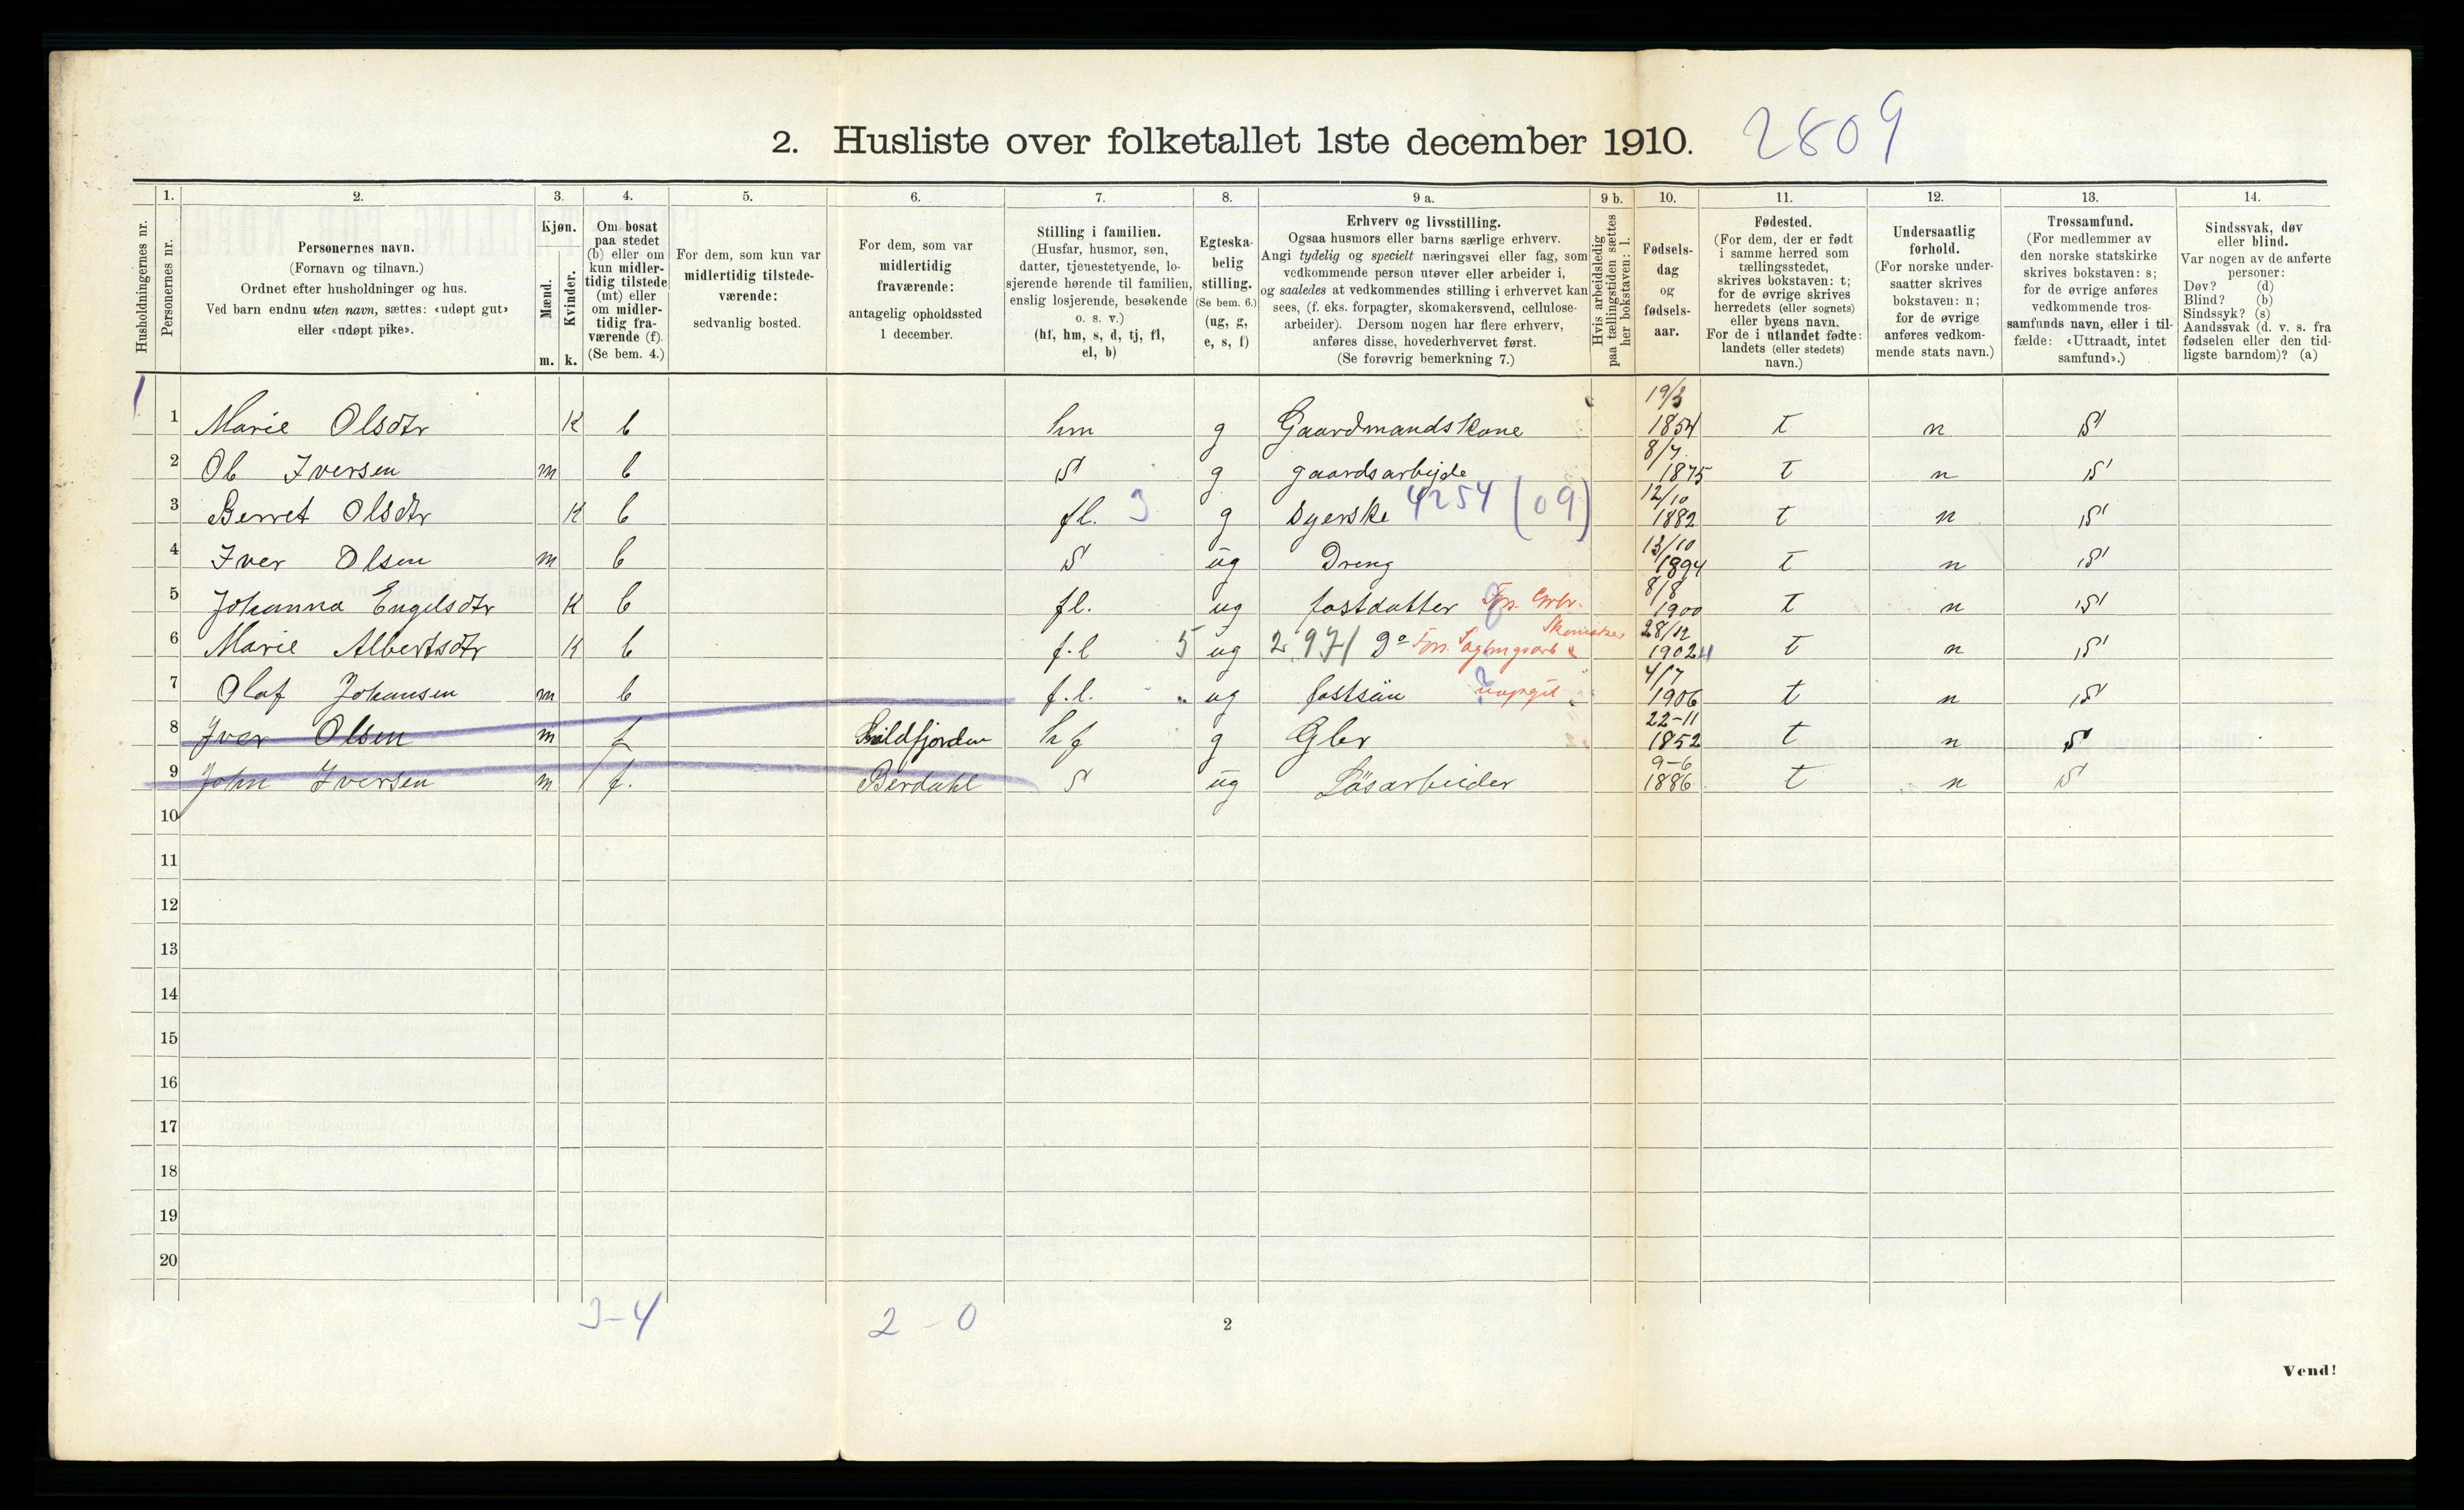 2. Husliste over folketallet 1ste december 1910. 2809
Husholdningernes nr.
1. Personernes nr.
2. Personernes navn.
(Fornavn og tilnavn.)
Ordnet efter husholdninger og hus.
Ved barn endnu uten navn, sættes: «udøpt gut»
eller «udøpt pike».
3. Kjøn.
Mænd. Kvinder.
m. k.
4. Om bosat
paa stedet
(b) eller om
kun midler-
tidig tilstede
(mt) eller
om midler-
tidig fra-
værende (f).
(Se bem. 4.)
5. For dem, som kun var
midlertidig tilstede-
værende:
sedvanlig bosted.
6. For dem, som var
midlertidig
fraværende:
antagelig opholdssted
1 december.
7. Stilling i familien.
(Husfar, husmor, søn,
datter, tjenestetyende, lo-
sjerende hørende til familien,
enslig losjerende, besøkende
o. s. v.)
(hf, hm, s, d, tj, fl,
el, b)
8. Egteska-
belig
stilling.
(Se bem. 6.)
(ug, g,
e, s, f)
9 a. Erhverv og livsstilling.
Ogsaa husmors eller barns særlige erhverv.
Angi tydelig og specielt næringsvei eller fag, som
vedkommende person utøver eller arbeider i,
og saaledes at vedkommendes stilling i erhvervet kan
sees, (f. eks. forpagter, skomakersvend, cellulose-
arbeider). Dersom nogen har flere erhverv,
anføres disse, hovederhvervet først.
(Se forøvrig bemerkning 7.)
9 b. Hvis arbeidsledig
paa tællingstiden sættes
her bokstaven: l.
10. Fødsels-
dag
og
fødsels-
aar.
11. Fødested.
(For dem, der er født
i samme herred som
tællingsstedet,
skrives bokstaven: t;
for de øvrige skrives
herredets (eller sognets)
eller byens navn.
For de i utlandet fødte:
landets (eller stedets)
navn.)
12. Undersaatlig
forhold.
(For norske under-
saatter skrives
bokstaven: n;
for de øvrige
anføres vedkom-
mende stats navn.)
13. Trossamfund.
(For medlemmer av
den norske statskirke
skrives bokstaven: s;
for de øvrige anføres
vedkommende tros-
samfunds navn, eller i til-
fælde: «Uttraadt, intet
samfund».)
14. Sindssvak, døv
eller blind.
Var nogen av de anførte
personer:
Døv? (d)
Blind? (b)
Sindssyk? (s)
Aandssvak (d. v. s. fra
fødselen eller den tid-
ligste barndom)? (a)
1 1 Marie Olsdtr K b hm g Gaardmandskone 19/3 1854 t n S
2 Ole Iversen m b S g gaardsarbejde 8/7 1875 t n S
3 Berret Olsdtr K b fl. 3 g Syerske 4254 (09) 12/10 1882 t n S
4 Iver Olsen m b S ug Dreng 13/10 1894 t n S
5 Johanna Engelsdtr K b fl. ug fostdatter 8/8 1900 t n S
6 Marie Albertsdtr K b f.l 5 ug 2.971 Do 28/12 1902 t n S
7 Olaf Johansen m b f.l. ug fostsøn 4/7 1906 t n S
8 Iver Olsen m f Sildfjorden hf g Gbr 22-11 1852 t n S
9 John Iversen m f. Berdahl S ug Løsarbeider 9-6 1886 t n S
10
11
12
13
14
15
16
17
18
19
20
3-4 2-0
2
Vend!